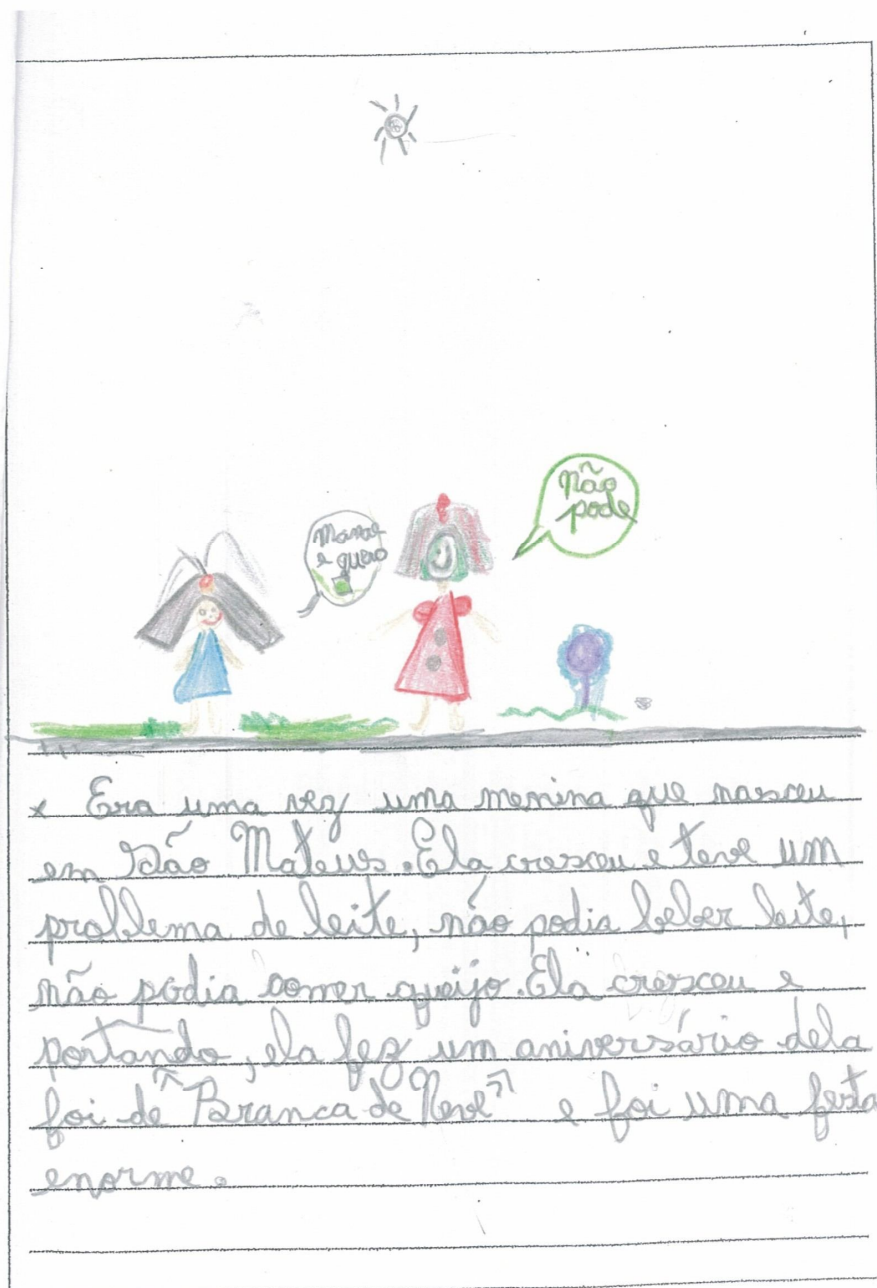 não
pode
e quero
x Era uma vez uma menina que nasceu
em São Mateus. Ela cresceu e teve um
problema de leite, não podia beber leite,
não podia comer queijo. Ela cresceu e
portando, ela fez um aniversário dela
foi de "Branca de Neve" e foi uma festa
enorme.